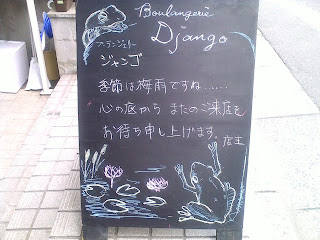 Boulangerie
Django
ブーランジェリー
ジャンゴ
季節は梅雨ですね……
心の底から またのご来店を
お待ち申し上げます。店主